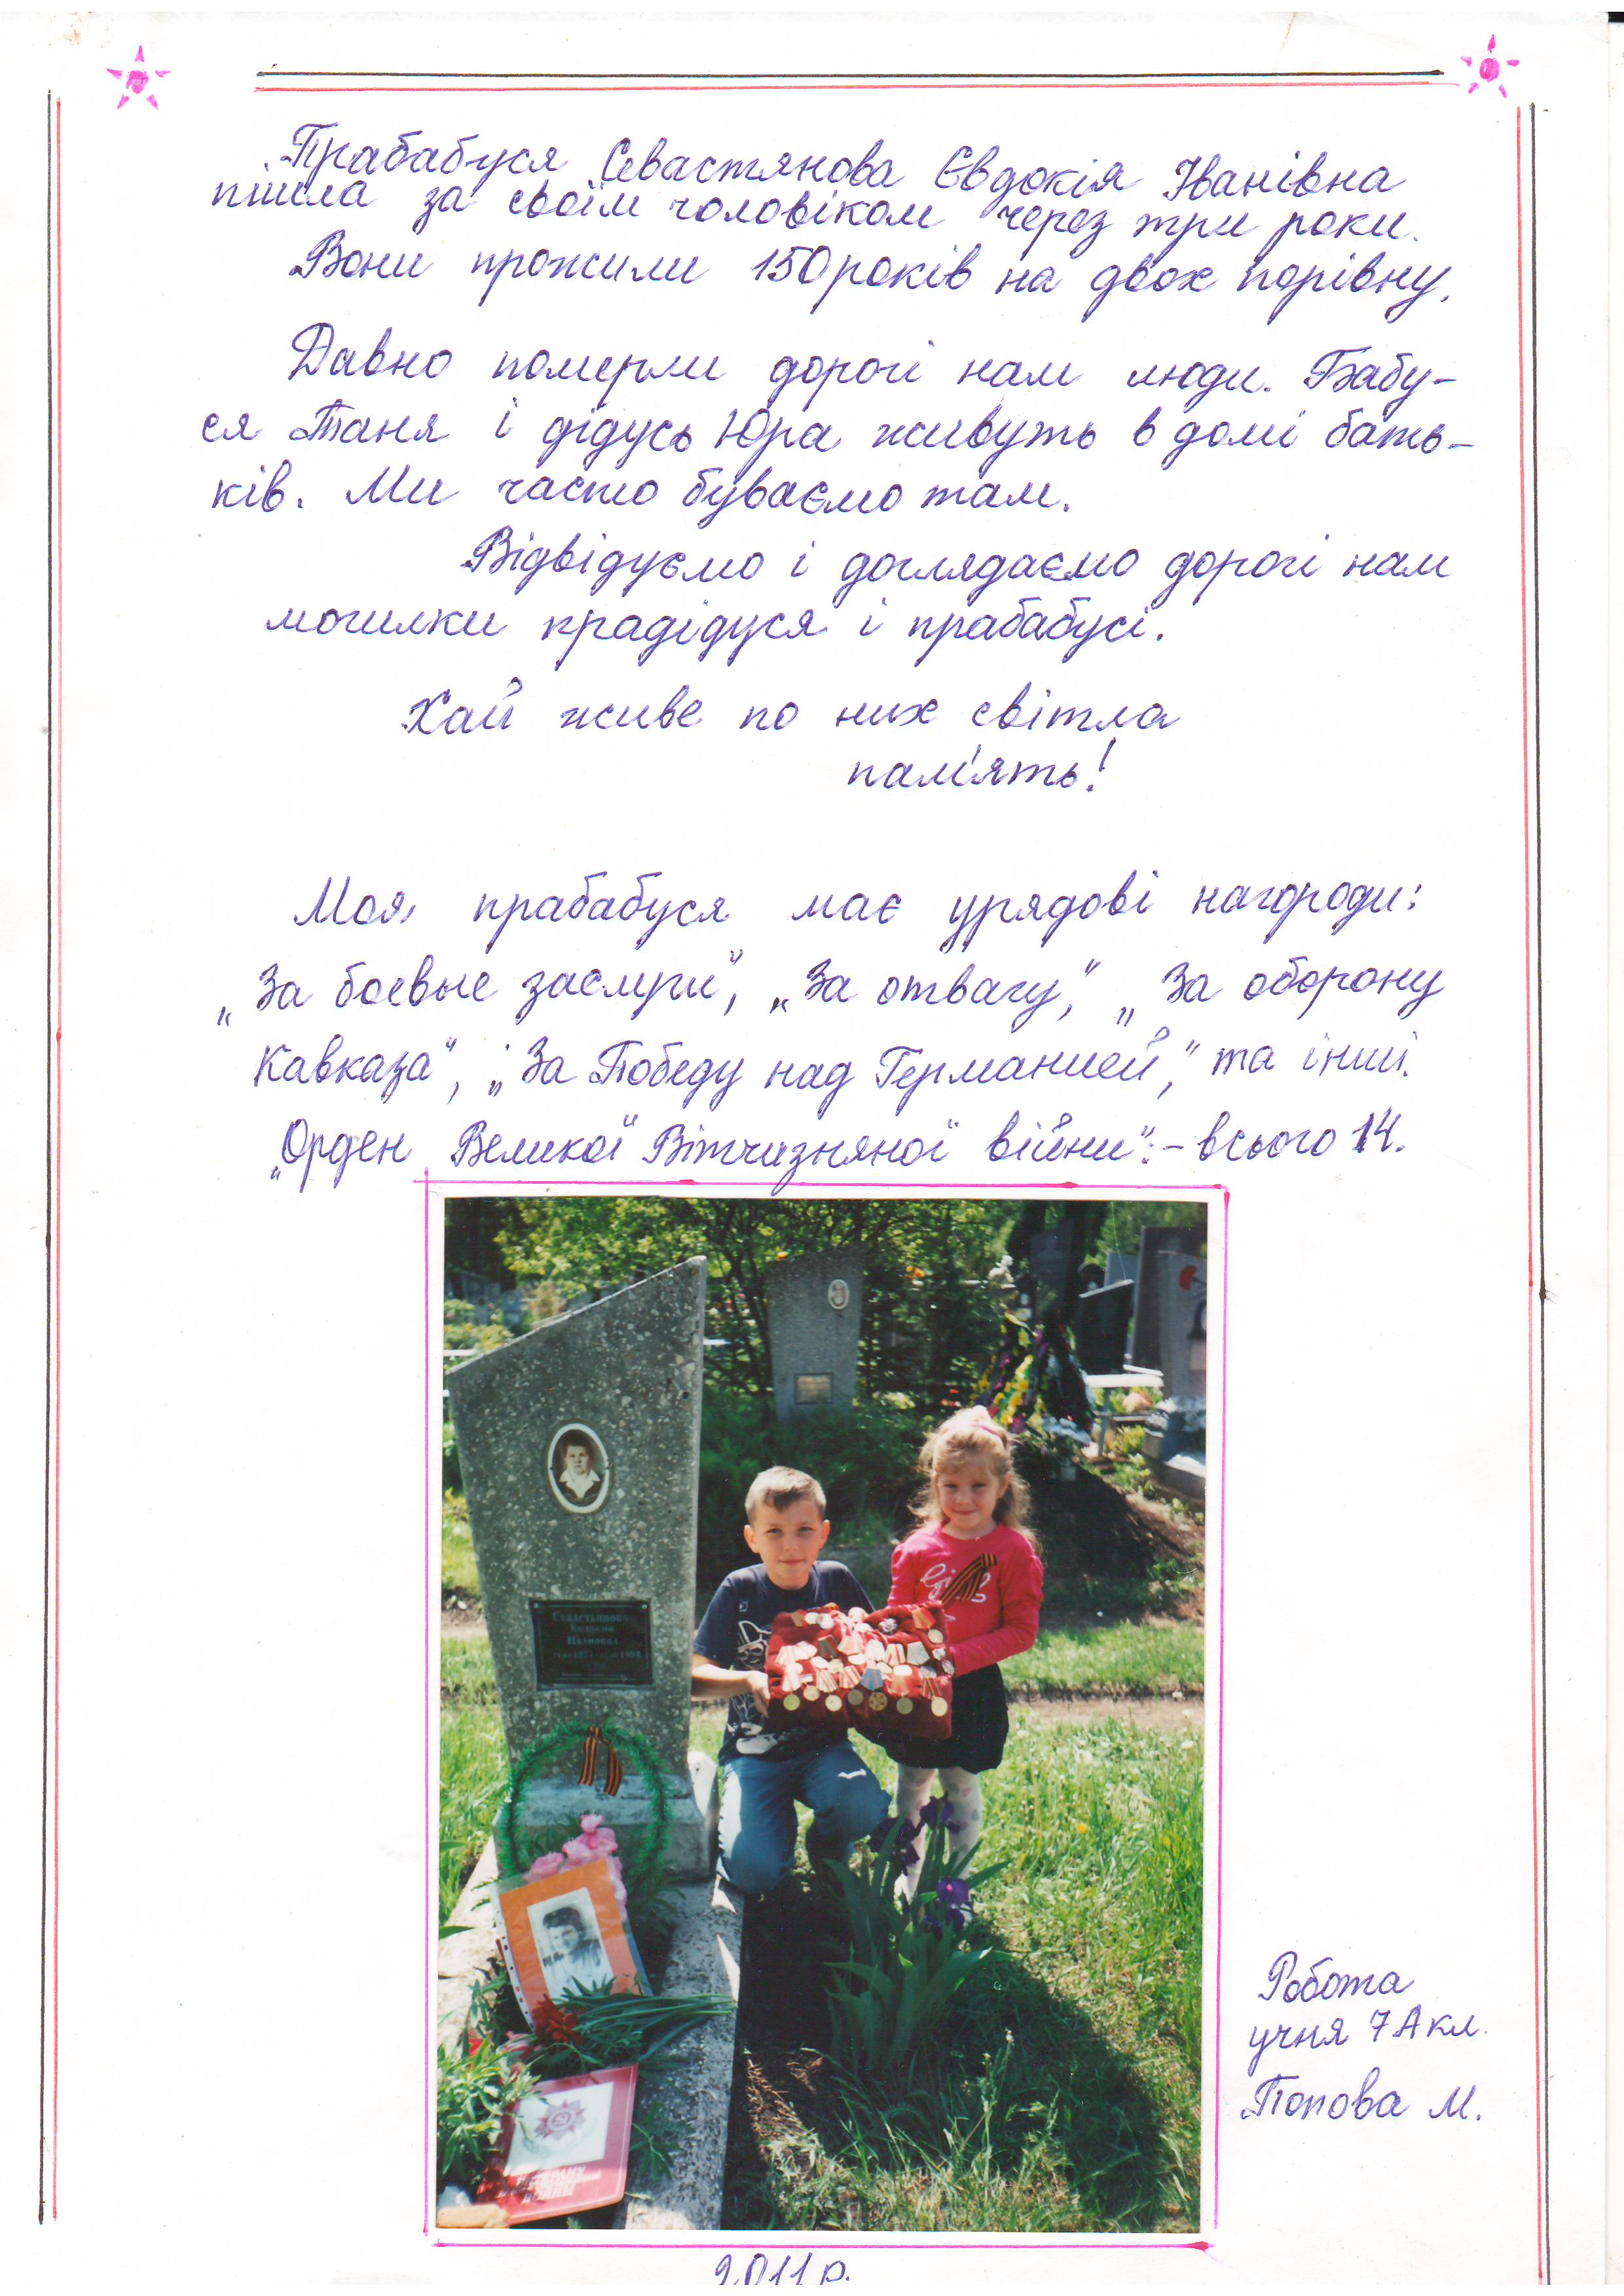 Прабабуся Севастянова Євдокія Іванівна
пішла за своїм чоловіком через три роки.
Вони прожили 150 років на двох порівну.
Давно померли дорогі нам люди. Бабу-
ся Таня і дідусь Юра живуть в домі бать-
ків. Ми часто буваємо там.
Відвідуємо і доглядаємо дорогі нам
могилки прадідуся і прабабусі.
Хай живе по них світла
пам'ять!
Моя прабабуся має урядові нагороди:
„За боевые заслуги", „За отвагу", „За оборону
Кавказа", „За Победу над Германией", та інші.
„Орден Великої Вітчизняної війни": - всього 14.
Севастьянова
Евдокия
Ивановна
ВЕТЕРАНУ
ВОЙНЫ
Робота
учня 7А кл.
Попова М.
2011 р.